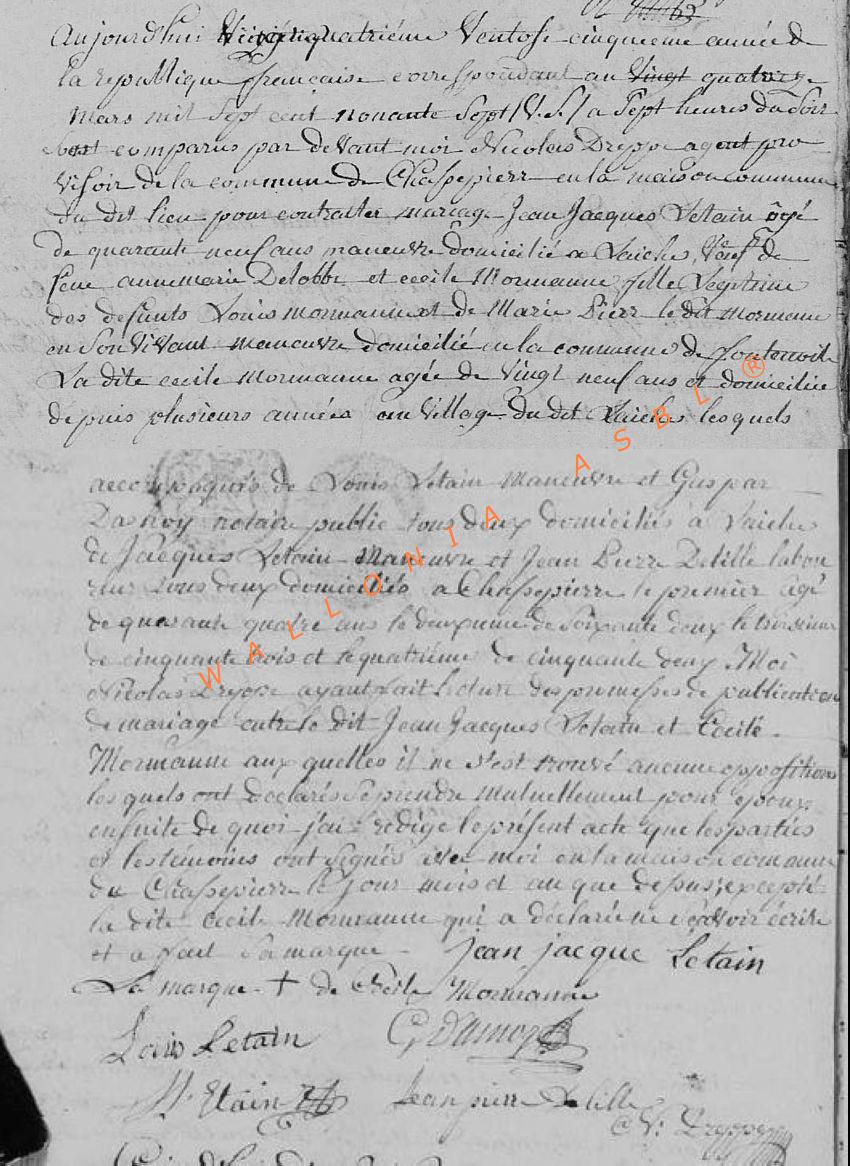 Aujourd'hui Vingt quatriéme Ventose cinquieme année de
la republique françaisse correspondant au Vingt quatorze
Mars mil sept cent nonante sept (V.S.) a sept heures du soir
est comparus par devant moi Nicolas Dreppe agent pro-
visoir de la commune de Chassepierr en la maison commune
du dit lieu pour contracter mariage Jean Jacques Letain âgé
de quarante neuf ans maneuvre domicilié a Laiche, veuf de
feue annemarie Delobbe et cecile Mormanne fille Legitime
des defunts Louis mormanne et de Marie Pierr le dit mormane
en son vivant maneuvre domicilié en la commune de fontenoil
La dite cecile Mormanne agée de vingt neuf ans et domiciliée
depuis plusieurs années au village du dit Laiche lesquels
accompagnés de Louis Letain Maneuvre et Gaspar
notaire public tous deux domiciliés à Laiche
de Jacques Letain Maneuvre et Jean Pierre Delille labou
reur tous deux domiciliés a Chassepierre le premier âgé
de quarante quatre ans le deuxieme de soixante deux le troisieme
de cinquante trois et le quatrième de cinquante deux Moi
Nicolas Dreppe ayant fait lecture des promesses de publication
de mariage entre le dit Jean Jacques Letain et Cecile
Mormanne aux quelles il ne s'est trouvé aucune oppositions
les quels ont declarés se prendre mutuellement pour epoux
ensuite de quoi j'ai redigé le présent acte que les parties
et les temoins ont signés avec moi en la maison commune
de Chassepierre le jour mois et an que dessus, excepté
la dite Cecile Mormanne qui a déclarée ne sçavoir écrire
et a fait sa marque - jean jacque Letain
La marque + de Cecile Mormanne
Louis Letain
Jean pierre Delille
N: Dreppe
WALLONIA ASBL ®